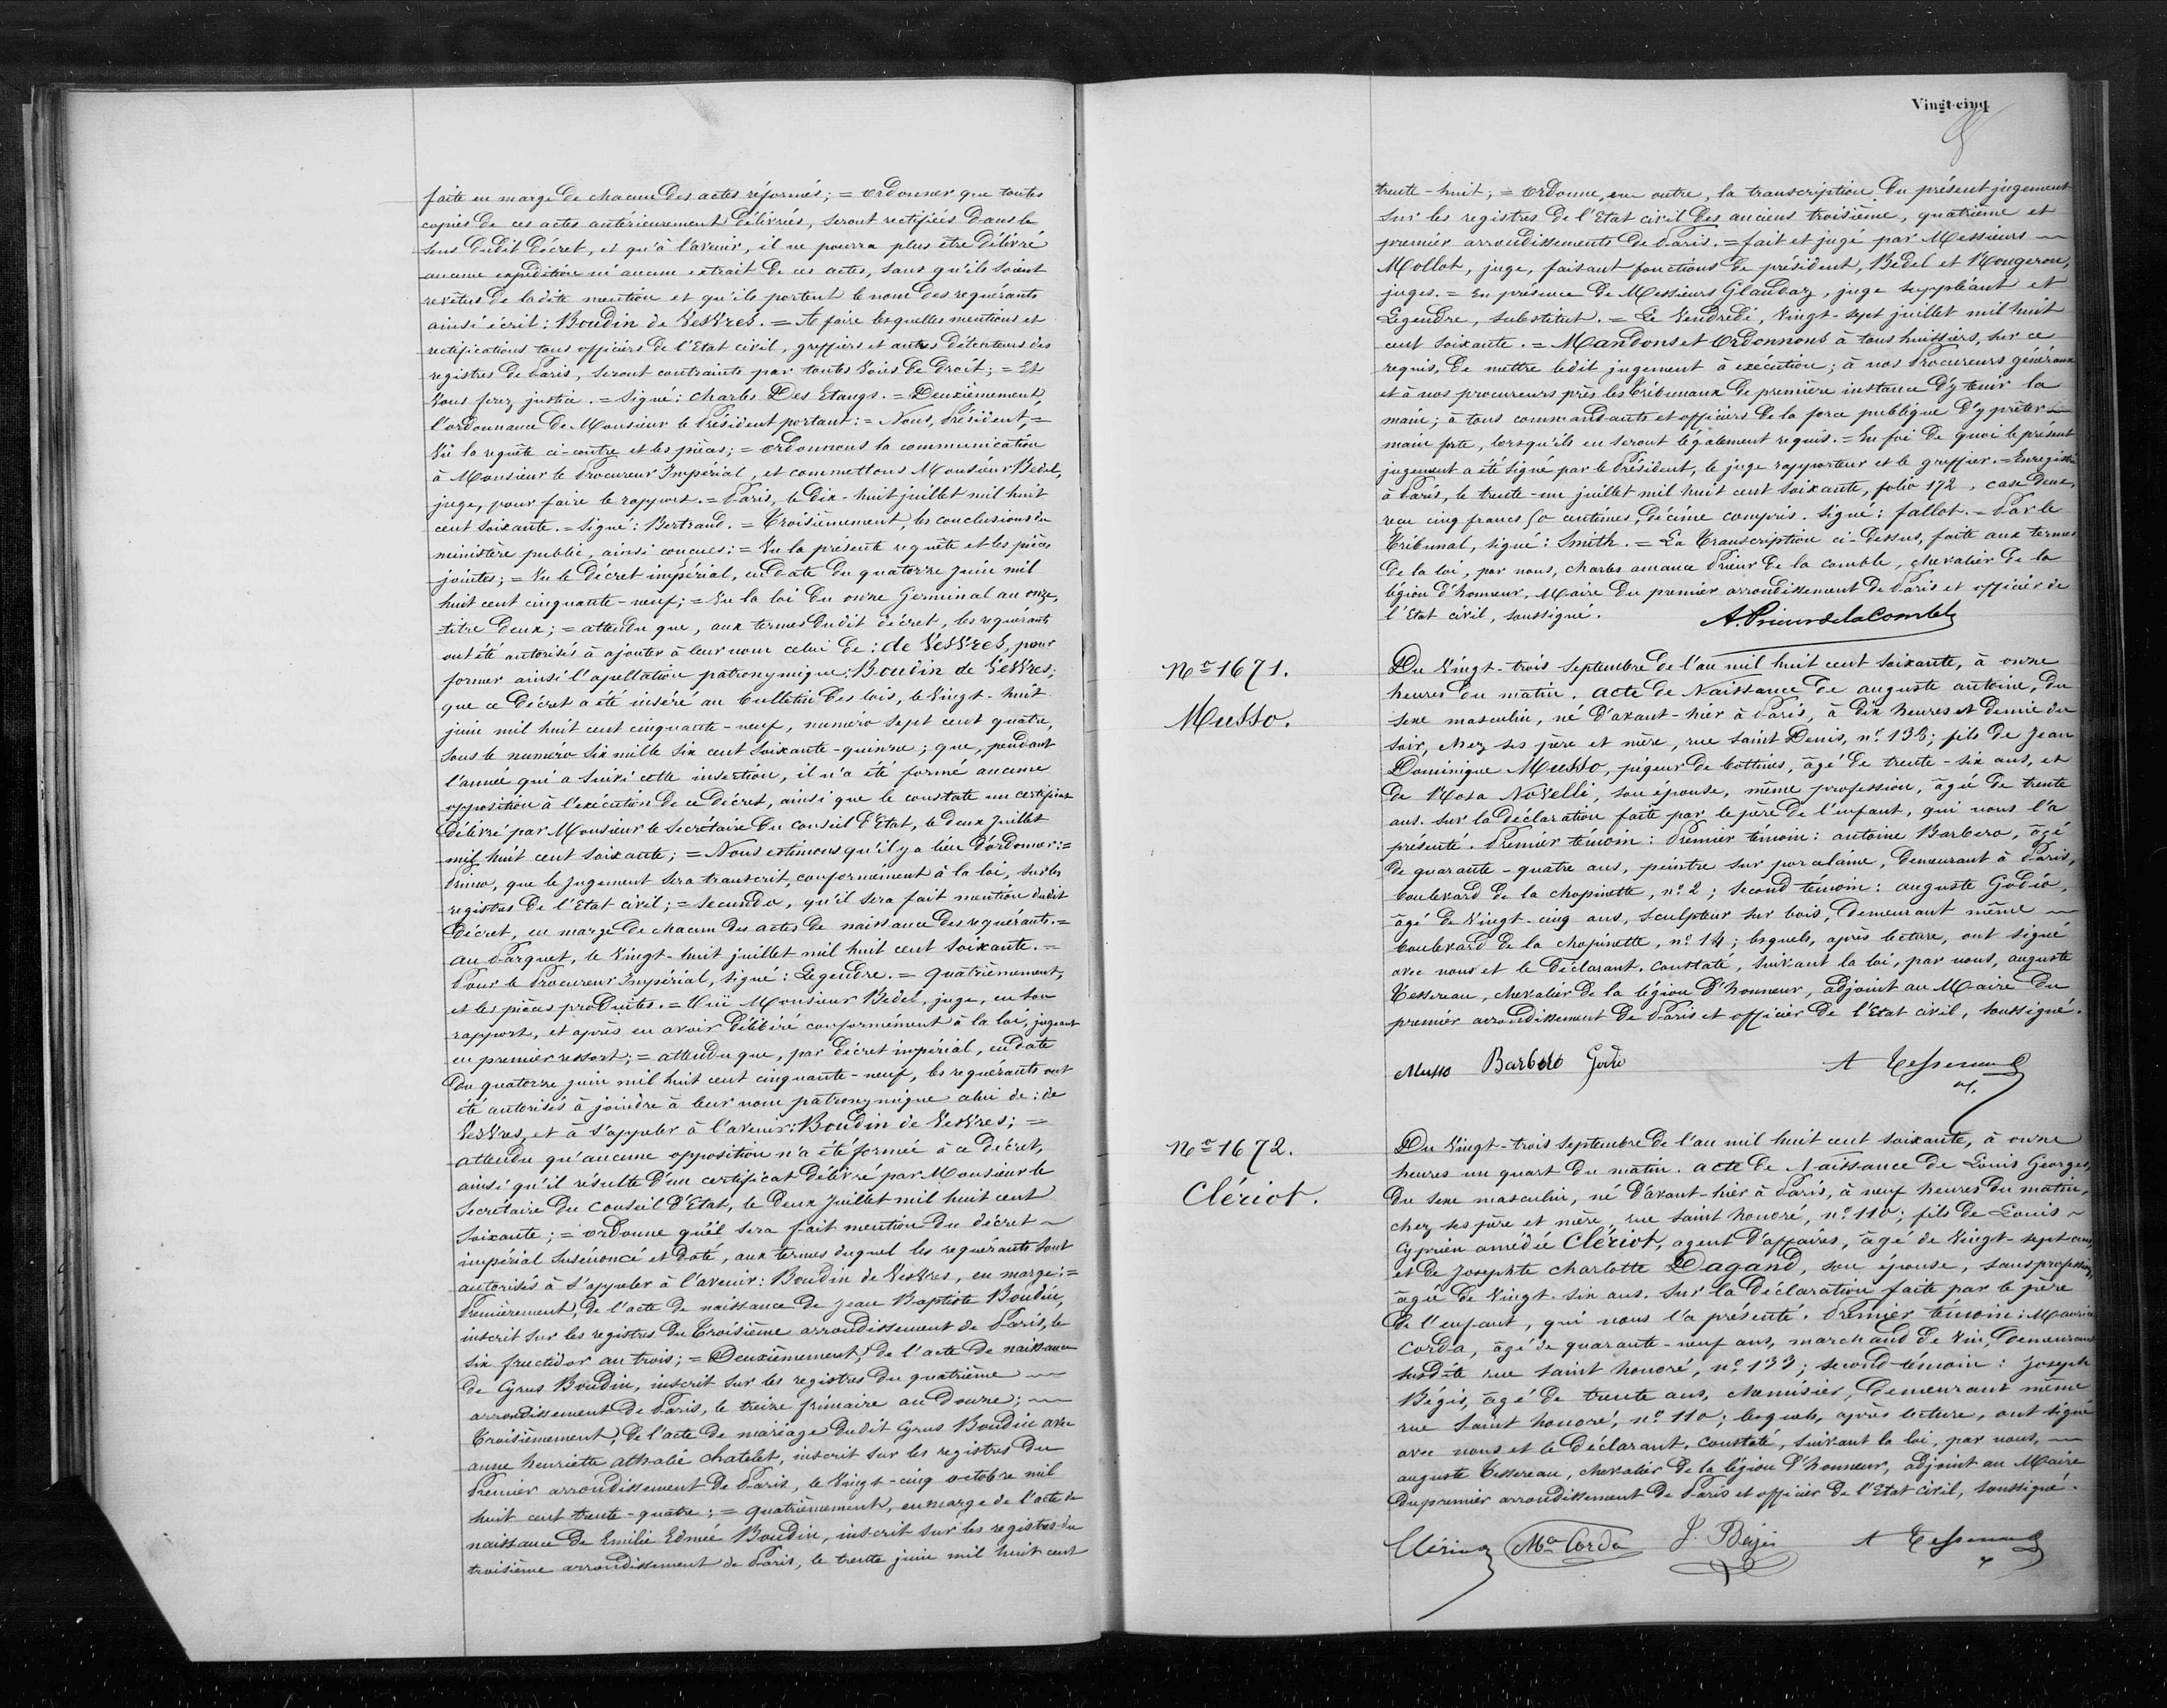 faite en marge de chacun des actes réformés; = ordonner que toutes
copies de ces actes antérieurement délivrés, seront rectifiées dans le
sens dudit décret, et qu'à l'avenir, il ne pourra plus être délivré
aucune expédition ni aucun extrait de ces actes, sans qu'ils soient
revêtus de ladite mention et qu'ils portent le nom des requérants
ainsi écrit: Boudin de Vesvres. = A faire lesquelles mentions et
rectifications tous officiers de l'Etat civil, greffiers et autres détenteurs des
registres de Paris, seront contraints par toutes voies de droit; = Et
vous ferez justice. = Signé: Charles Des Etangs. = Deuxièmement,
l'ordonnance de Monsieur le Président portant: = Nous, Président, =
Vû la requête ci-contre et les pièces; = ordonnons la communication
à Monsieur le Procureur Impérial, et commettons Monsieur Bedel,
juge, pour faire le rapport. = Paris, le dix-huit juillet mil huit
cent soixante. = Signé: Bertrand. = Troisièmement, les conclusions du
ministère public, ainsi conçues: = Vu la présente requête et les pièces
jointes; = Vu le décret impérial, en date du quatorze juin mil
huit cent cinquante-neuf; = Vu la loi du onze Germinal an onze,
titre deux; = attendu que, aux termes dudit décret, les requérants
ont été autorisés à ajouter à leur nom celui de: de Vesvres, pour
former ainsi l'apellation patronymique: Boudin de Vesvres;
que ce décret a été inséré au bulletin des lois, le vingt-huit
juin mil huit cent cinquante-neuf, numéro sept cent quatre,
sous le numéro six mille six cent soixante-quinze; que, pendant
l'année qui a suivi cette insertion, il n'a été formé aucune
opposition à l'exécution de ce décret, ainsi que le constate un certificat
délivré par Monsieur le Secrétaire du Conseil d'Etat, le deux juillet
mil huit cent soixante; = Nous estimons qu'il y a lieu d'ordonner: =
Primo, que le jugement sera transcrit, conformément à la loi, sur les
registres de l'Etat civil; = secundo, qu'il sera fait mention dudit
décret, en marge de chacun des actes de naissance des requérants. =
au Parquet, le vingt-huit juillet mil huit cent soixante. =
Pour le Procureur Impérial, signé: Legendre. = quatrièmement,
et les pièces produites. = Ouï Monsieur Bedel, juge, en son
rapport, et après en avoir délibéré conformément à la loi, jugeant
en premier ressort; = attendu que, par décret impérial, en date
du quatorze juin mil huit cent cinquante-neuf, les requérants ont
été autorisés à joindre à leur nom patronymique celui de: de
Vesvres, et à s'appeler à l'avenir: Boudin de Vesvres; =
attendu qu'aucune opposition n'a été formée à ce décret,
ainsi qu'il résulte d'un certificat délivré par Monsieur le
Secrétaire du Conseil d'Etat, le deux juillet mil huit cent
soixante; = ordonne qu'il sera fait mention du décret
impérial susénoncé et daté, aux termes duquel les requérants sont
autorisés à s'appeler à l'avenir: Boudin de Vesvres, en marge: =
Premièrement, de l'acte de naissance de Jean Baptiste Boudin,
inscrit sur les registres du troisième arrondissement de Paris, le
six fructidor an trois; = Deuxièmement, de l'acte de naissance
de Cyrus Boudin, inscrit sur les registres du quatrième
arrondissement de Paris, le treize frimaire an douze;
Troisièmement, de l'acte de mariage dudit Cyrus Boudin avec
anne henriette athalie Chatelet, inscrit sur les registres du
Premier arrondissement de Paris, le vingt-cinq octobre mil
huit cent trente-quatre; = quatrièmement, en marge de l'acte de
naissance de Emilie Edmée Boudin, inscrit sur les registres du
troisième arrondissement de Paris, le trente juin mil huit cent
Vingt-cinq
trente-huit; = ordonne, en outre, la transcription du présent jugement
sur les registres de l'Etat civil des anciens troisième, quatrième et
premier arrondissements de Paris. = fait et jugé par Messieurs
Mollot, juge, faisant fonctions de président, Bedel et Rougeron,
juges. = En présence de Messieurs Glandaz, juge suppléant et
Legendre, substitut. = Le Vendredi, vingt-sept juillet mil huit
cent soixante. = Mandons et Ordonnons à tous huissiers, sur ce
requis, de mettre ledit jugement à exécution; à nos Procureurs généraux
et à nos procureurs près les tribunaux de première instance d'y tenir la
main; à tous commandants et officiers de la force publique d'y prêter
main forte, lorsqu'ils en seront légalement requis. = En foi de quoi le présent
jugement a été signé par le Président, le juge rapporteur et le greffier. = Enregistré
à Paris, le trente-un juillet mil huit cent soixante, folio 172, case deux,
reçu cinq francs 50 centimes, décime compris. Signé: fallot. = Par le
Tribunal, signé: Smith. = La transcription ci-dessus, faite aux termes
de la loi, par nous, Charles amance Prieur de la comble, chevalier de la
légion d'honneur, Maire du premier arrondissement de Paris et officier de
l'Etat civil, soussigné.
A. Prieur de la Comble
No 1671.
Musso.
Du vingt-trois septembre de l'an mil huit cent soixante, à onze
heures du matin. Acte de Naissance de auguste antoine, du
sexe masculin, né d'avant-hier à Paris, à dix heures et demie du
soir, chez ses père et mère, rue saint Denis, no 138; fils de Jean
Dominique Musso, piqueur de bottines, âgé de trente-six ans, et
de Rosa Novelli, son épouse, même profession, âgée de trente
ans. sur la déclaration faite par le père de l'enfant, qui nous l'a
présenté. Premier témoin: Premier témoin: antoine Barbero, âgé
de quarante-quatre ans, peintre sur porcelaine, demeurant à Paris,
boulevard de la chopinette, no 2; second témoin: auguste Godio,
âgé de vingt-cinq ans, sculpteur sur bois, demeurant même
boulevard de la chopinette, no 14; lesquels, après lecture, ont signé
avec nous et le déclarant. constaté, suivant la loi, par nous, auguste
Tessereau, chevalier de la légion d'honneur, adjoint au Maire du
premier arrondissement de Paris et officier de l'Etat civil, soussigné.
Musso Barbero Godio A Tessereau
No 1672.
Clériot.
Du vingt-trois septembre de l'an mil huit cent soixante, à onze
heures un quart du matin. acte de Naissance de Louis Georges,
du sexe masculin, né d'avant-hier à Paris, à neuf heures du matin,
chez ses père et mère, rue saint honoré, no 110; fils de Louis
Cyprien amédée Clériot, agent d'affaires, âgé de vingt-sept ans,
et de Josephte charlotte Dagand, son épouse, sans profession,
âgée de vingt-six ans. sur la déclaration faite par le père
de l'enfant, qui nous l'a présenté. Premier témoin: Maurice
Corda, âgé de quarante-neuf ans, marchand de vin, demeurant
susdite rue saint honoré, no 133; second témoin: Joseph
Bégis, âgé de trente ans, chemisier, demeurant même
rue saint honoré, no 110; lesquels, après lecture, ont signé
avec nous et le déclarant. constaté, suivant la loi, par nous,
auguste Tessereau, chevalier de la légion d'honneur, adjoint au Maire
du premier arrondissement de Paris et officier de l'Etat civil, soussigné.
Clériot Mce Corda J. Bégis A Tessereau